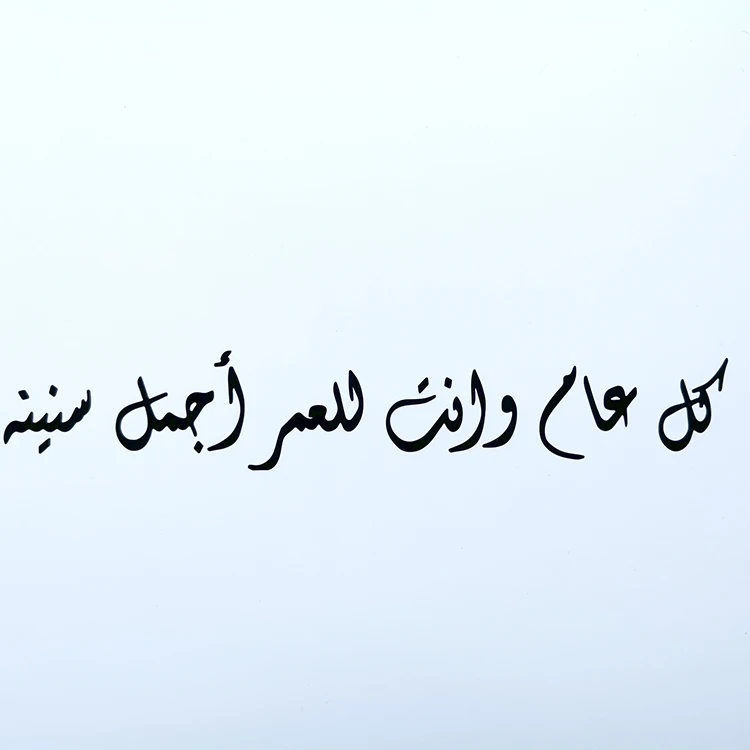 كل عام وانت للعمر أجمل سنينه